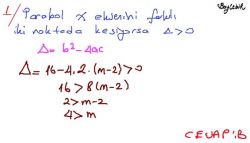 1/ Parabol x eksenini farklı
iki noktada kesiyorsa Δ>0
Δ = b² - 4ac
Δ = 16-4.2.(m-2)>0
16 > 8(m-2)
2 > m-2
4 > m
CEVAP:B